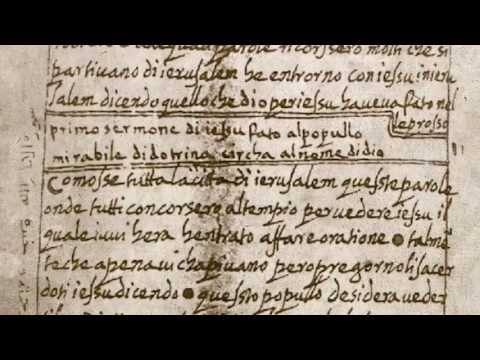 parole ricorsero molti che si
partiuano di ierusalem he entrorno con iessu in ieru
salem dicendo quello che dio per iessu haueua fato nel
leprosso
primo sermone di iessu fato al popullo
mirabile di dotrina circha al nome di dio
Comosse tutta la cita di ierusalem quesste parole
onde tutti concorsero al tempio per uedere iessu il
quale iuui hera hentrato affare oratione • talme
te che apena ui chapiuano pero pregorno li sacer
doti iessu dicendo • quessto popullo desidera ueder